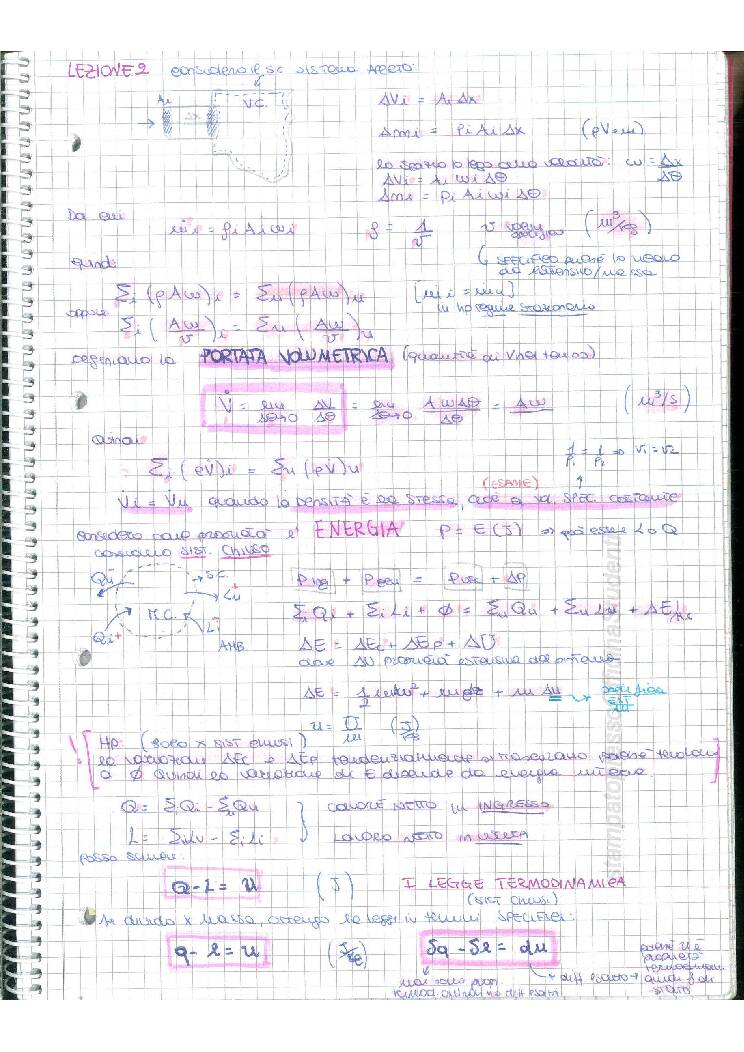 LEZIONE 2 considero SC sistema aperto:
Ai Δx V.C.
ΔVi = Ai Δx
Δmi = ρi Ai Δx (ρV=m)
lo spazio lo lego alla velocità: w = Δx/Δθ
ΔVi = Ai wi Δθ
Δmi = ρi Ai wi Δθ
Da cui
ṁi = ρi Ai wi ρ = 1/v v (m³/kg)
SPECIFICO perché lo vedo da estensivo/massa
quindi
Σi (ρAw)i = Σu (ρAw)u [ṁi = ṁu]
oppure in hp regime stazionario
Σi (Aw/v)i = Σu (Aw/v)u
definiamo la PORTATA VOLUMETRICA (quantità di V nel tempo)
V̇ = lim Δθ→0 ΔV/Δθ = lim Δθ→0 A w Δθ/Δθ = Aw (m³/s)
Quindi
1/ρ1 = 1/ρ2 ⇒ v1 = v2
Σi (ρV̇)i = Σu (ρV̇)u
(ESAME)
V̇i = V̇u quando la densità è la stessa, cioè a vol. SPEC. costante
considero come proprietà l' ENERGIA P = E (J) ⇒ può essere L o Q
consideriamo SIST. CHIUSO
Qu⁻ S.C. Lu⁺
M.C.
Qi⁺ Li⁻ AMB.
Ping + Pgen = Pusc + ΔP
Σi Qi + Σi Li + Ø = Σu Qu + Σu Lu + ΔE
ΔE = ΔEc + ΔEp + ΔU
dove ΔU proprietà estensiva del sistema
ΔE = ½ mΔw² + mgΔz + m Δu
u = U/m (J/kg)
Hp: (solo x SIST CHIUSI)
le variazioni ΔEC e ΔEp tendenzialmente si trascurano poiché tendono
a Ø quindi la variazione di E dipende da energia interna.
Q = Σi Qi - Σu Qu CALORE NETTO in INGRESSO
L = Σu Lu - Σi Li LAVORO NETTO in USCITA
posso scrivere:
Q - L = U (J) I LEGGE TERMODINAMICA
(SIST CHIUSI)
Se divido x massa, ottengo la legge in termini SPECIFICI:
q - l = u (J/kg) δq - δl = du
diff esatto
poiché U è proprietà termodinam. quindi f di stato
stampato da